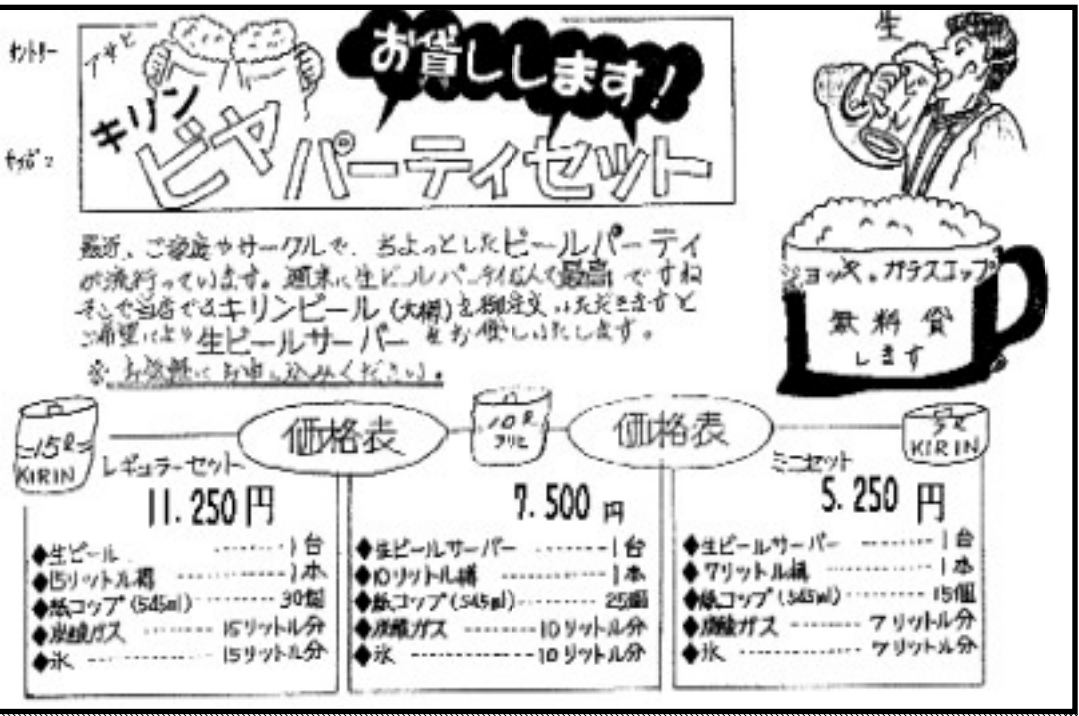 サントリー
アサヒ
サッポロ
お貸しします!
キリン
ビヤパーティセット
生
最近、ご家庭やサークルで、ちょっとしたビールパーティ
が流行っています。週末に生ビールパーティなんて最高ですね
そこで当店ではキリンビール(大樽)を御注文いただきますと
ご希望により生ビールサーバーをお貸しいたします。
お気軽にお申し込みください。
ジョッキ。ガラスコップ
無料貸
します
15ℓ
KIRIN
価格表
10ℓ
アサヒ
価格表
KIRIN
レギュラーセット
11.250円
◆生ビール ········1台
◆15リットル樽 ········1本
◆紙コップ(545ml) ········30個
◆炭酸ガス ········15リットル分
◆氷 ········15リットル分
7.500円
◆生ビールサーバー ········1台
◆10リットル樽 ········1本
◆紙コップ(545ml) ········25個
◆炭酸ガス ········10リットル分
◆氷 ········10リットル分
ミニセット
5.250円
◆生ビールサーバー ········1台
◆7リットル樽 ········1本
◆紙コップ(545ml) ········15個
◆炭酸ガス ········7リットル分
◆氷 ········7リットル分